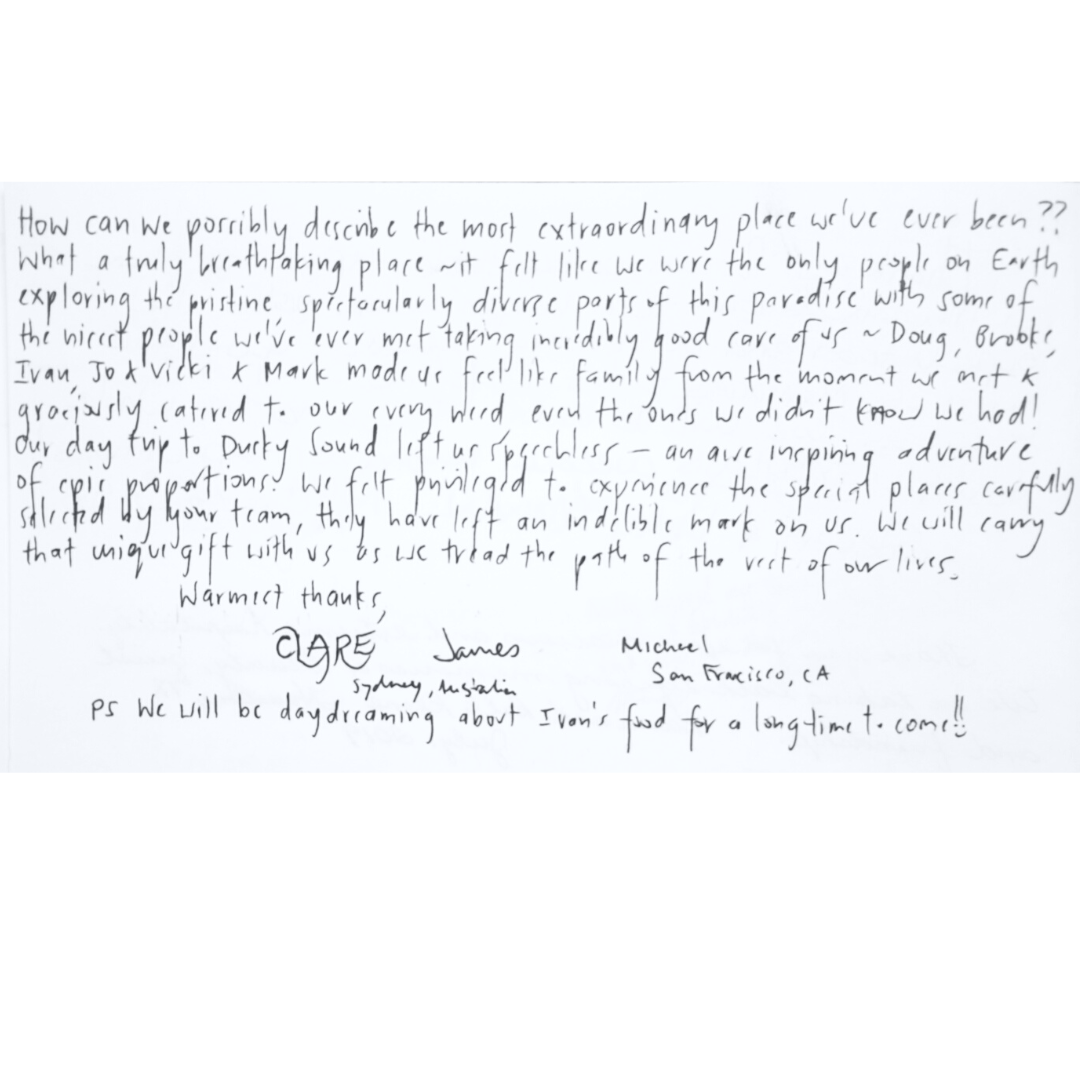 How can we possibly describe the most extraordinary place we've ever been??
What a truly breathtaking place ~ it felt like we were the only people on Earth
exploring the pristine, spectacularly diverse parts of this paradise with some of
the nicest people we've ever met taking incredibly good care of us ~ Doug, Brooke,
Ivan, Jo & Vicki & Mark made us feel like family from the moment we met &
graciously catered to our every need even the ones we didn't know we had!
Our day trip to Dusky Sound left us speechless – an awe inspiring adventure
of epic proportions! We felt privileged to experience the special places carefully
selected by your team, they have left an indelible mark on us. We will carry
that unique gift with us as we tread the path of the rest of our lives.
Warmest thanks,
CLARE James Michael
Sydney, Australia San Francisco, CA
PS We will be daydreaming about Ivan's food for a long time to come!!